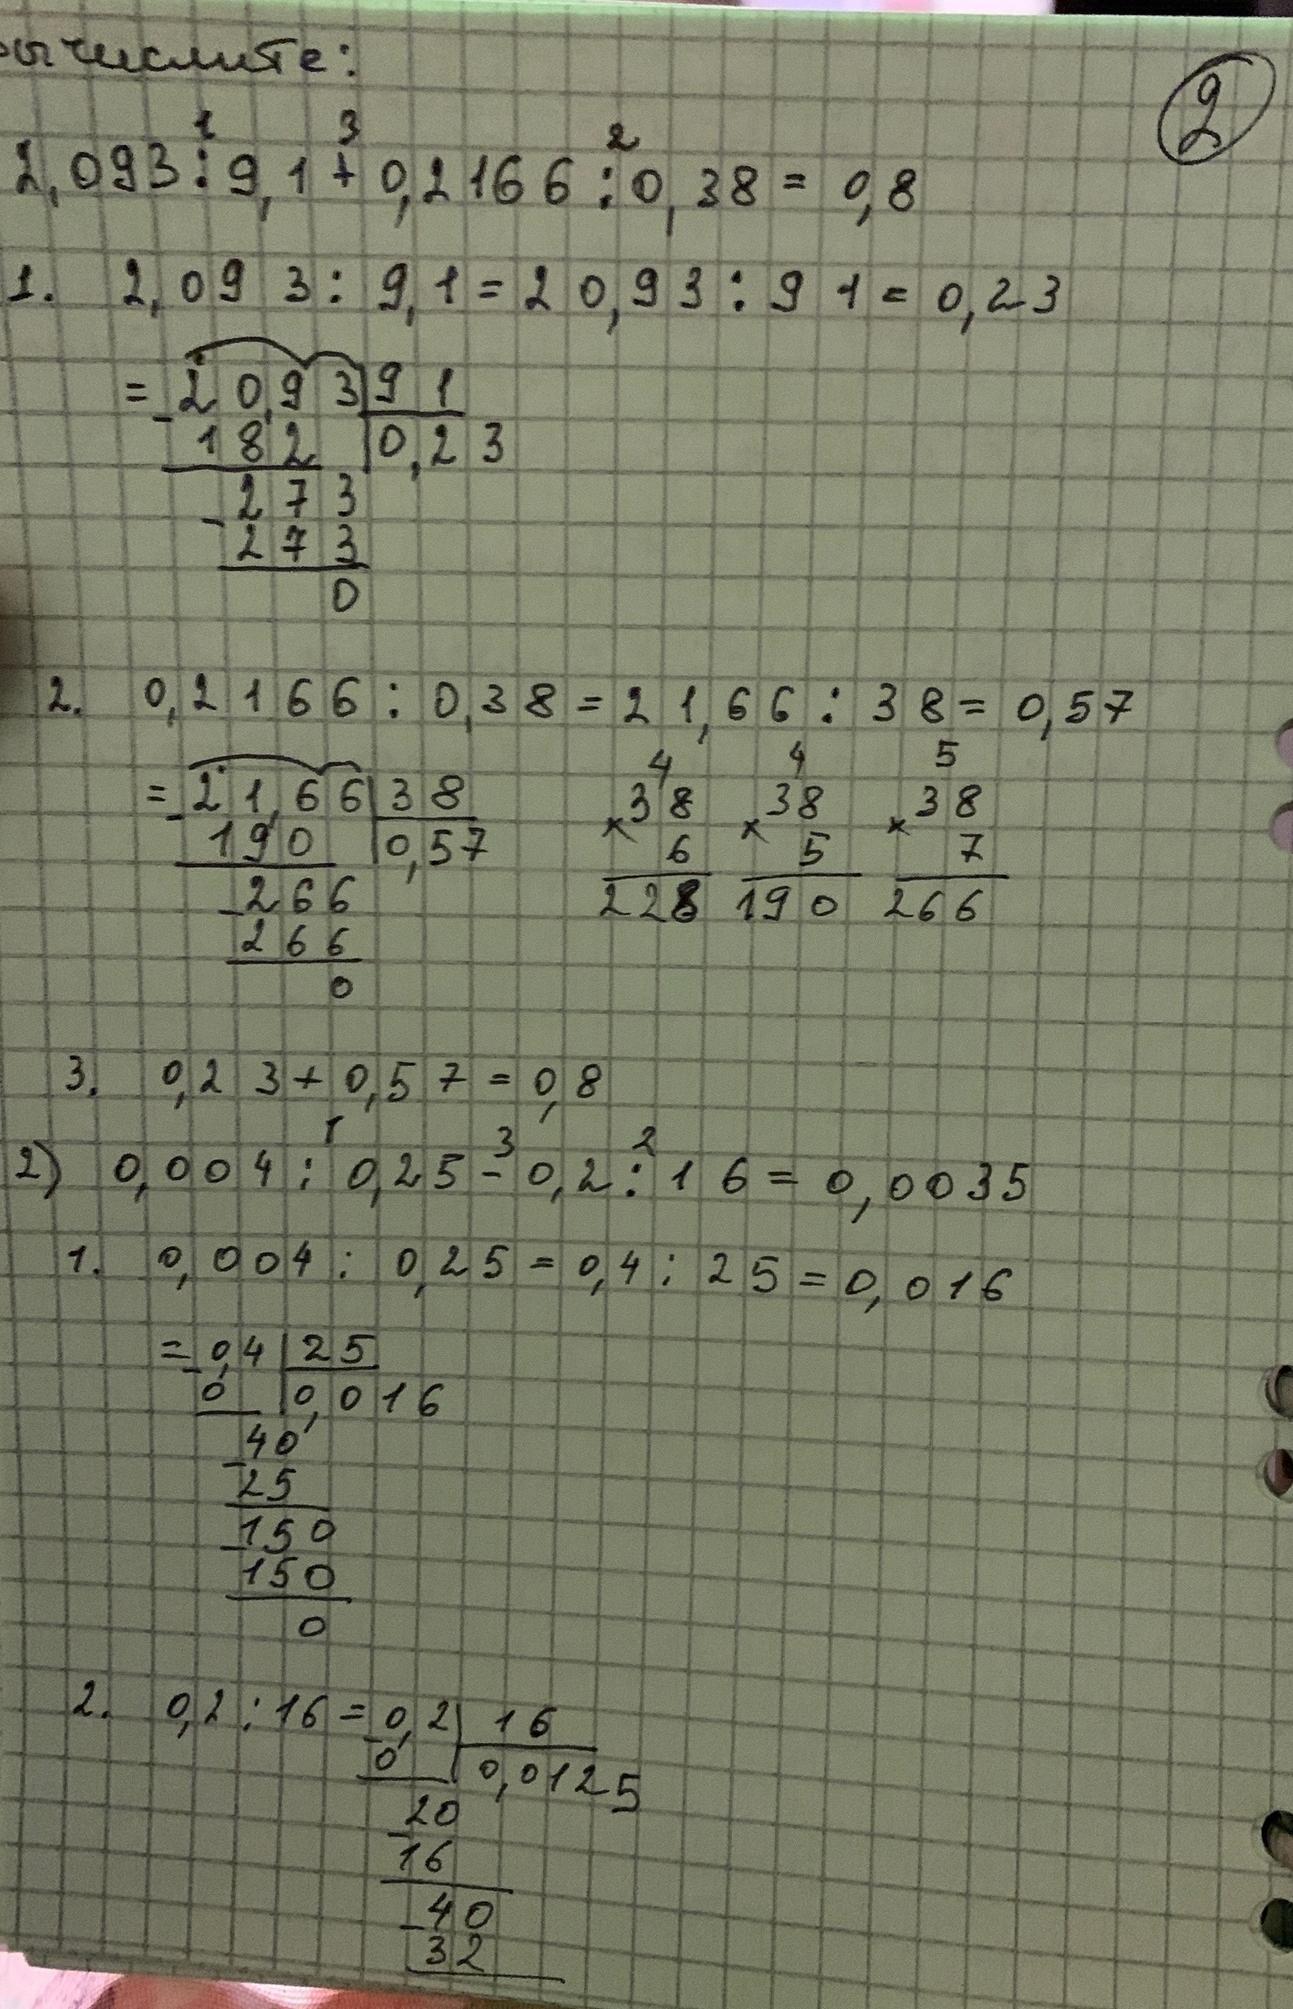 вычислите:
2
1 3 2
2,093:9,1+0,2166:0,38=0,8
1. 2,093:9,1=20,93:91=0,23
= 20,93 | 91
- 182 | 0,23
- 273
273
0
2. 0,2166:0,38=21,66:38=0,57
4 4 5
= - 21,66 | 38 × 38 × 38 × 38
190 | 0,57 6 5 7
- 266 228 190 266
266
0
3. 0,23+0,57=0,8
1 3 2
2) 0,004:0,25-0,2:16=0,0035
1. 0,004:0,25=0,4:25=0,016
= - 0,4 | 25
0 | 0,016
- 40
25
- 150
150
0
2. 0,2:16= - 0,2 | 16
0 | 0,0125
- 20
16
- 40
32